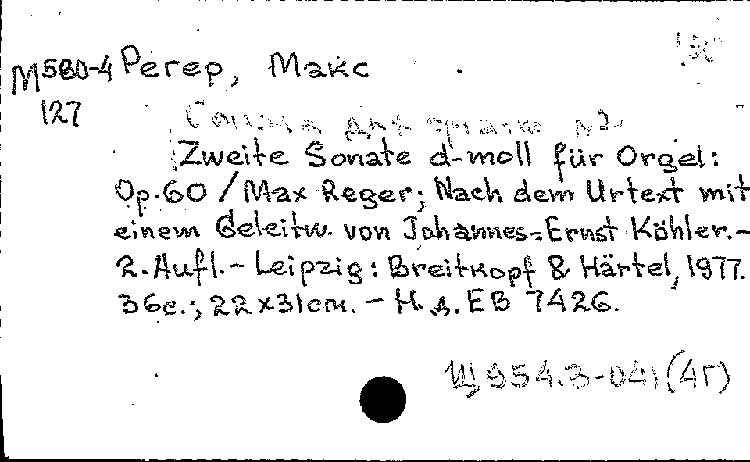 М580-4 Регер, Макс
127
Соната для органа №2
Zweite Sonate d-moll für Orgel:
Op.60 / Max Reger; Nach dem Urtext mit
einem Geleitw. von Johannes-Ernst Köhler.-
2. Aufl.- Leipzig: Breitkopf & Härtel, 1977.
36с.; 22x31см. - Н.д. EB 7426.
Щ954.3-041(4Г)